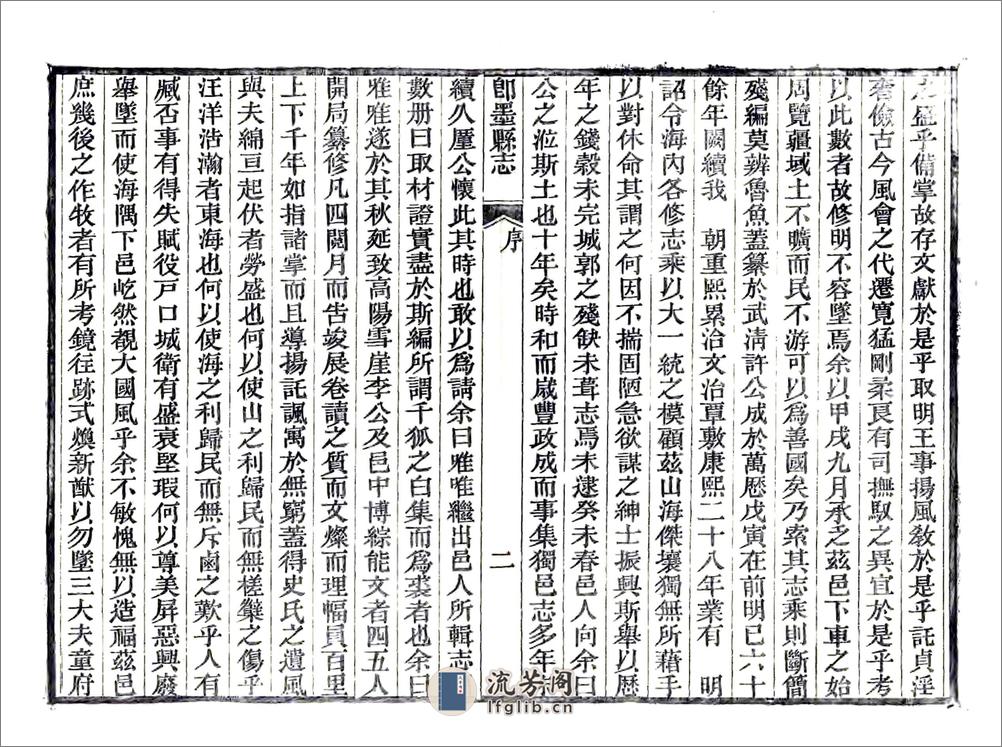 之盛乎備掌故存文獻於是乎取明王事揚風敎於是乎託貞淫
奢儉古今風會之代遷寬猛剛柔良有司撫馭之異宜於是乎考
以此數者故修明不容墜焉余以甲戌九月承乏茲邑下車之始
周覽疆域土不曠而民不游可以爲善國矣乃索其志乘則斷簡
殘編莫辨魯魚蓋纂於武淸許公成於萬歷戊寅在前明已六十
餘年闕續我 朝重熙累洽文治覃敷康熙二十八年業有 明
詔令海內各修志乘以大一統之模顧茲山海傑壤獨無所藉手
以對休命其謂之何因不揣固陋急欲謀之紳士振興斯舉以歷
年之錢穀未完城郭之殘缺未葺志焉未逮癸未春邑人向余曰
公之涖斯土也十年矣時和而歲豐政成而事集獨邑志多年未
卽墨縣志
序
二
續久厪公懷此其時也敢以爲請余曰唯唯繼出邑人所輯志稿
數册曰取材證實盡於斯編所謂千狐之白集而爲裘者也余曰
唯唯遂於其秋延致高陽雪崖李公及邑中博綜能文者四五人
開局纂修凡四閱月而告竣展卷讀之質而文燦而理幅員百里
上下千年如指諸掌而且導揚託諷寓於無窮蓋得史氏之遺風
與夫綿亘起伏者勞盛也何以使山之利歸民而無槎櫱之傷乎
汪洋浩瀚者東海也何以使海之利歸民而無斥鹵之歎乎人有
臧否事有得失賦役戸口城衛有盛衰堅瑕何以尊美屏惡興廢
舉墜而使海隅下邑屹然覩大國風乎余不敏愧無以造福茲邑
庶幾後之作牧者有所考鏡往跡式煥新猷以勿墜三大夫童府
流芳阁
lfglib.cn